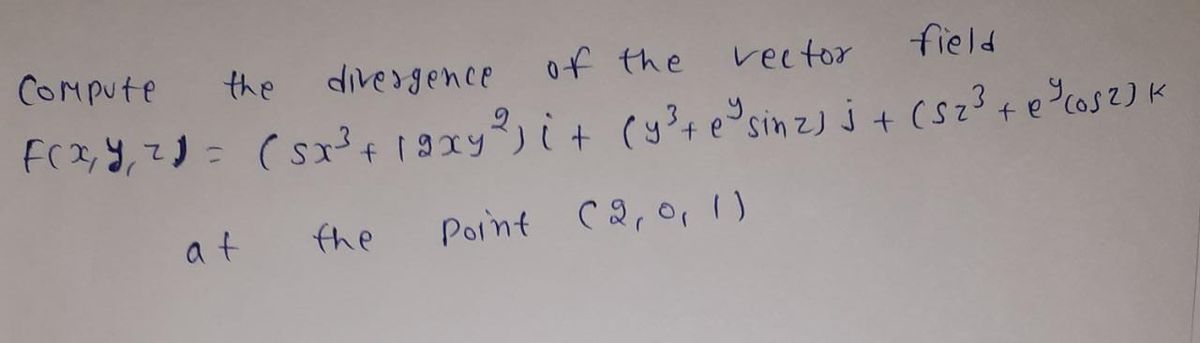 Compute the divergence of the vector field
F(x, y, z) = (5x³ + 12xy²) i + (y³ + e^y sin z) j + (5z³ + e^y cos z) k
at the point (2, 0, 1)